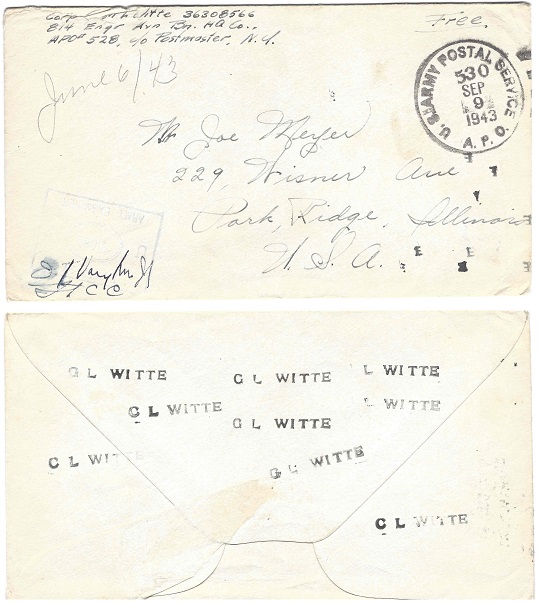 Corp Witte 36308566
814 Engr Avn Bn. HQ Co.,
APO# 528, c/o Postmaster, N.Y.
Free.
June 6/43
U.S. ARMY POSTAL SERVICE
530
SEP
9
1943
A. P. O.
Mr Joe Meyer
229, Wisner Ave
Park, Ridge, Illinois
U. S. A.
G L WITTE
G L WITTE
L WITTE
G L WITTE
L WITTE
G L WITTE
G L WITTE
G L WITTE
G L WITTE